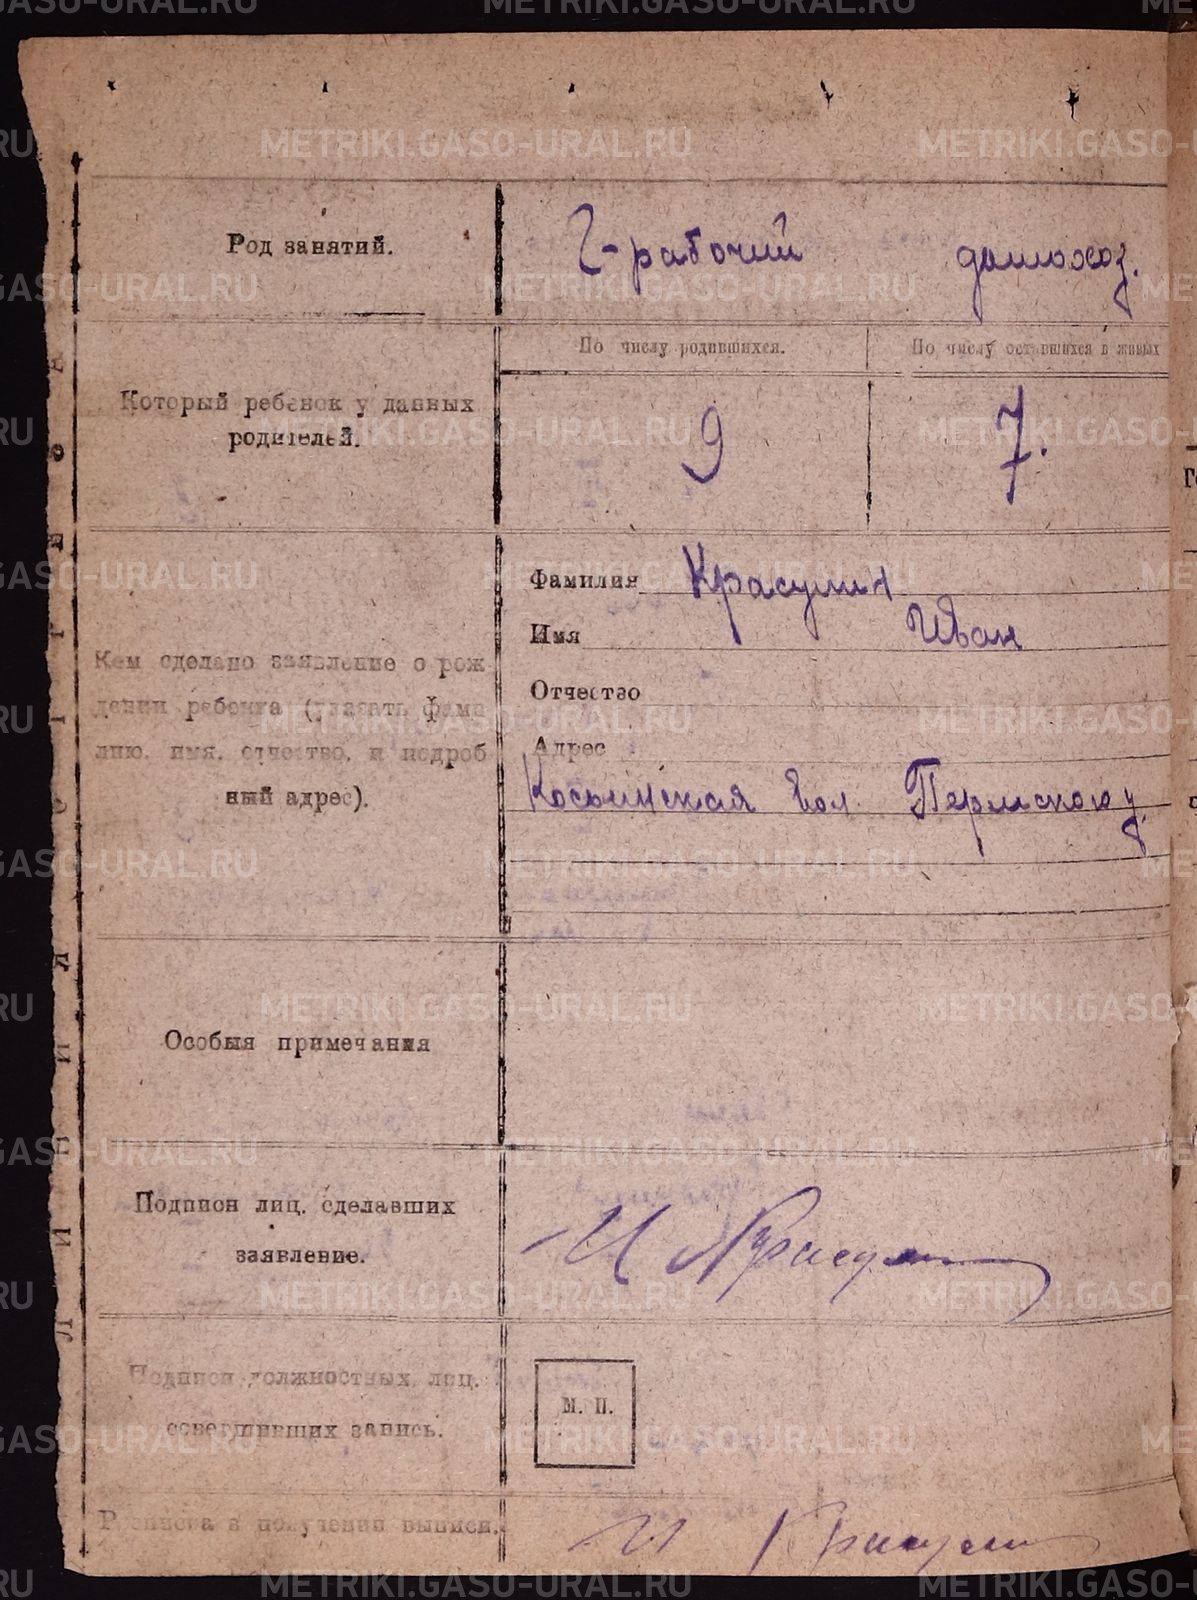 Род занятий.
Ч-рабочий домохоз.
По числу родившихся. По числу оставшихся в живых
Который ребенок у данных
родителей.
9 7.
Фамилия Красулин
Имя Иван
Отчество
Адрес
Косьинская вол. Пермского у.
Кем сделано заявление о рож
дении ребенка (указать фами
лию, имя, отчество, и подроб
ный адрес).
Особыя примечания
Подписи лиц, сделавших
заявление.
И Красулин
Подписи должностных лиц,
совершивших запись.
М. П.
Росписка в получении выписи.
И Красулин
METRIKI.GASO-URAL.RU